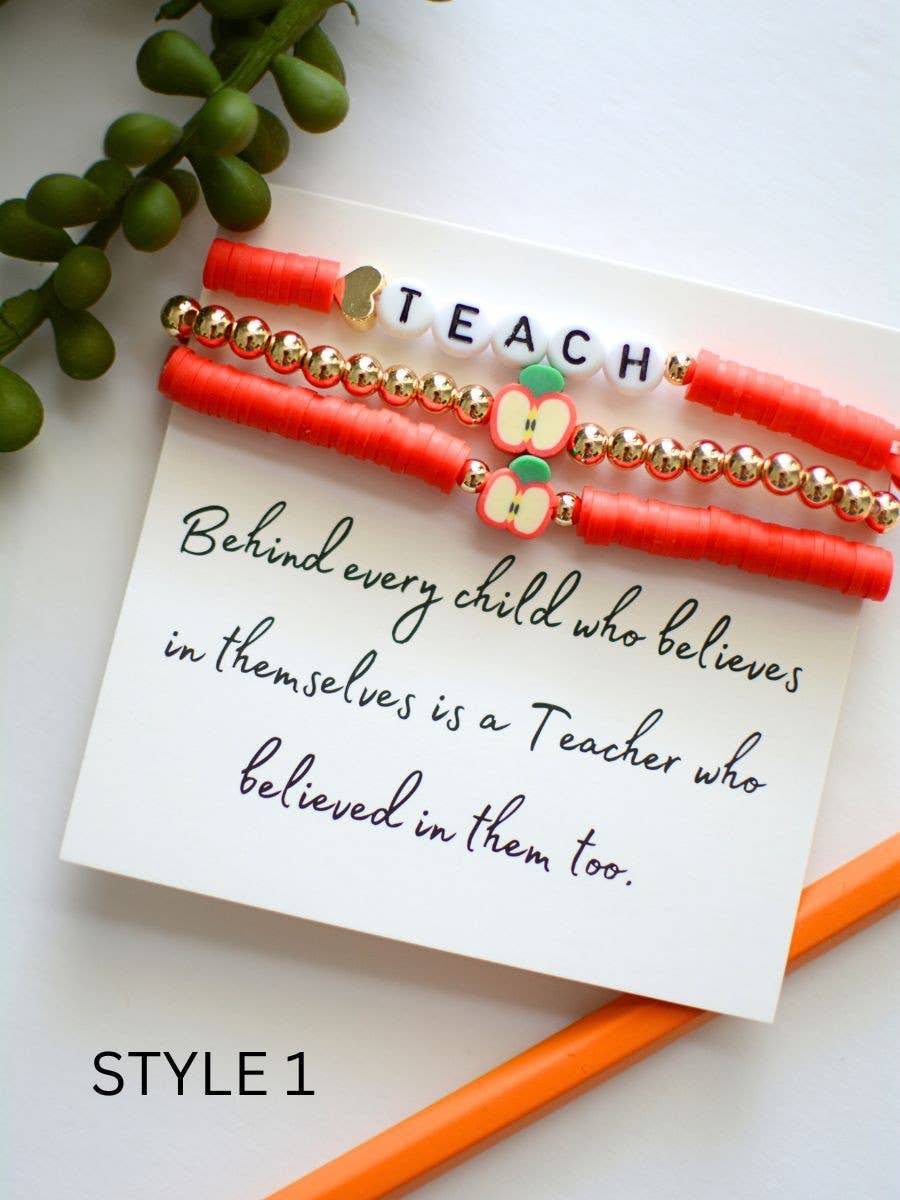 TEACH
Behind every child who believes
in themselves is a Teacher who
believed in them too.
STYLE 1